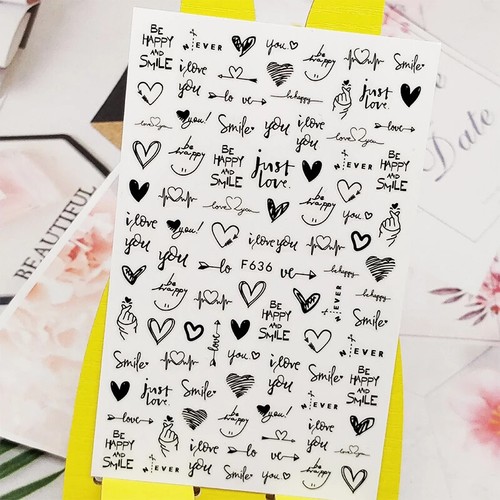 BE
HAPPY
AND
SMILE
NEVER
you
be
happy
Smile
i love
you
lo ve
be happy
just
love.
love
love you
you!
Smile
you
i love
you
be
happy
BE
HAPPY
AND
SMILE
just
love.
NEVER
BE
HAPPY
AND
SMILE
love you
be
happy
you
i love
you
you!
i love you
you
lo
F636
ve
be happy
be
happy
BE
HAPPY
AND
SMILE
NEVER
be happy
Smile
love
you
NEVER
Smile
i love
you
Smile
BE
HAPPY
AND
SMILE
just
love.
Smile
love
be
happy
you!
NEVER
BE
HAPPY
AND
SMILE
NEVER
i love
you
Smile
you
be
happy
love you
BEAUTIFUL
Date